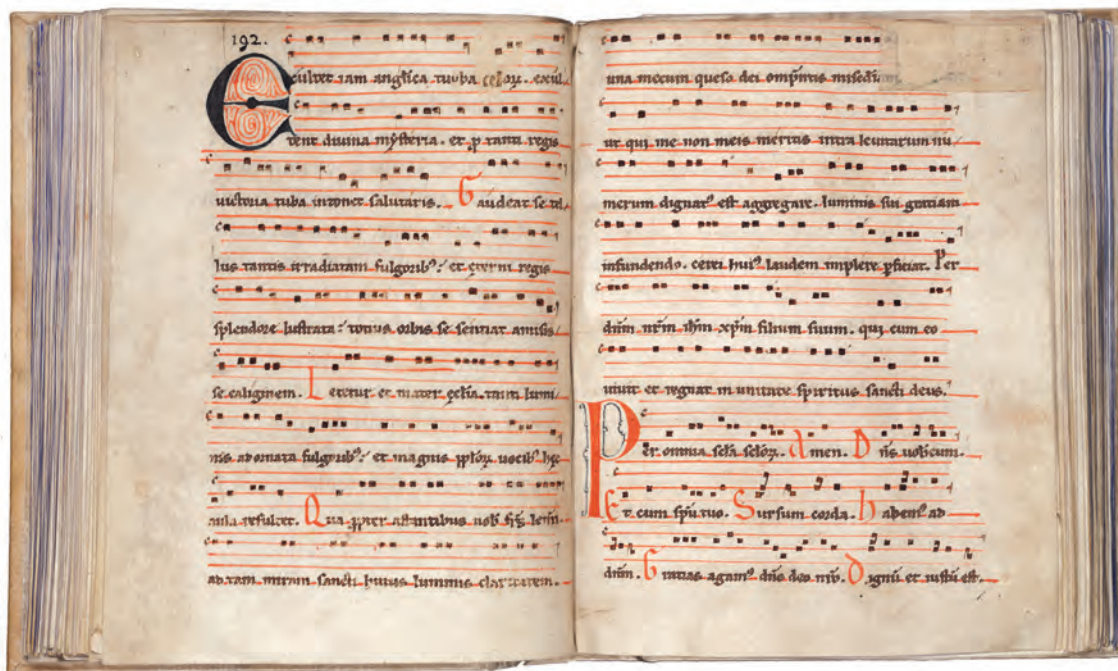 192.
Exultet iam anglica turba celoꝝ. exul
tent diuina mysteria. et ꝑ tanti regis
uictoria tuba intonet salutaris. Gaudeat se tel
lus tantis irradiatam fulgorib⁹: et ęterni regis
splendore lustrata: totius orbis se sentiat amisis
se caliginem. Letetur et mater ęcl̄ia tanti lumi
nis adornata fulgorib⁹: et magnis pp̄loꝝ uocib⁹ hęc
aula resultet. Qua ꝓpter astantibus uob̄ fr̄s
ad tam miram sancti huius luminis claritatem.
una mecum queso dei omp̄itis
ut qui me non meis meritis intra leuitarum nu
merum dignat⁹ est aggregare. luminis sui gratiam
infundendo. cerei hui⁹ laudem implere ꝑficiat. Per
dn̄m nr̄m ih̄m xp̄m filium suum. qui cum eo
uiuit et regnat in unitate spiritus sancti deus.
Per omnia scl̄a scl̄oꝝ. Amen. Dn̄s uobiscum.
Et cum sp̄u tuo. Sursum corda. Habem⁹ ad
dn̄m. Gratias agam⁹ dn̄o deo nr̄o. Dignū et iustū est.